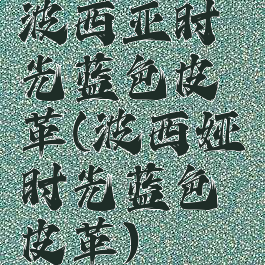 波西亚时
光蓝色皮
革(波西娅
时光蓝色
皮革)